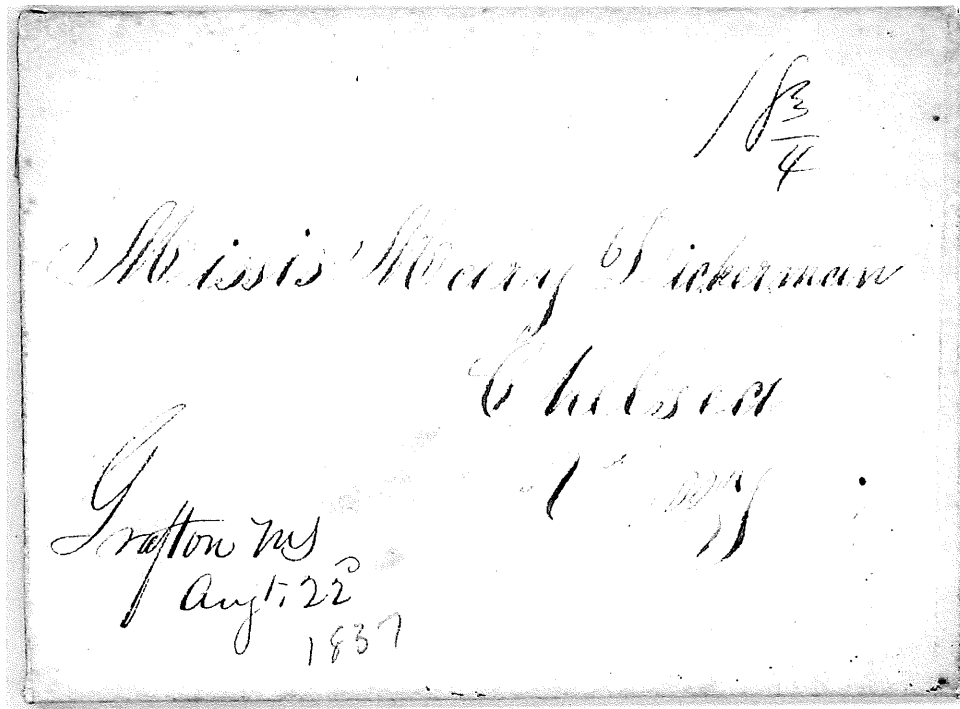 18 3/4
Missis Mary Dickerman
Chelsea
Grafton Ms
Augt. 22d
1837